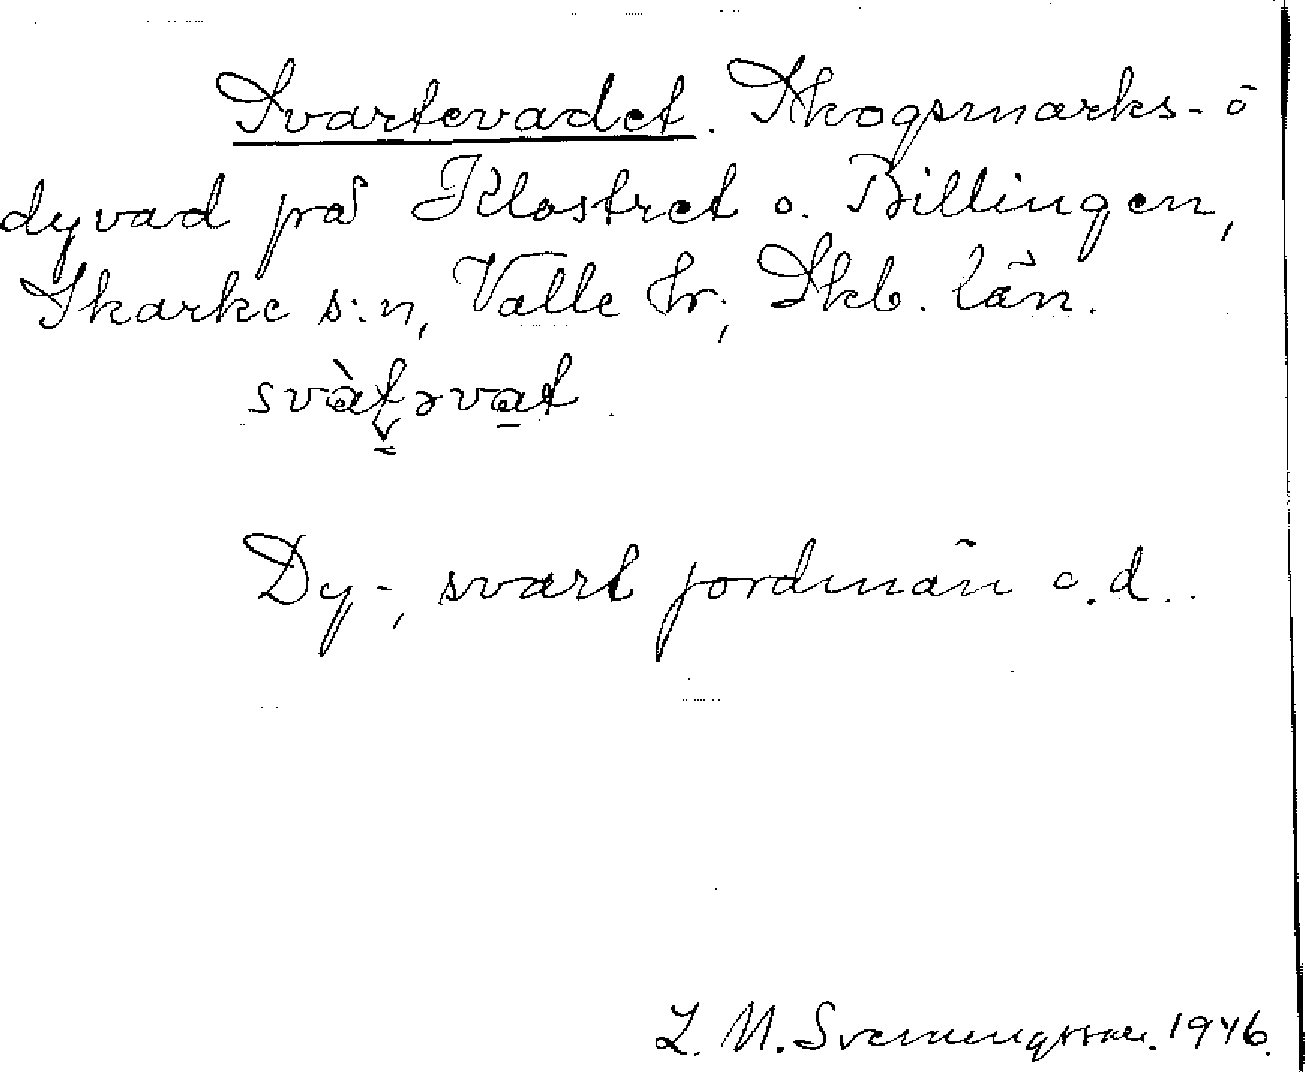 Svartevadet. Skogsmarks- o
dyvad på Klostret o. Billingen,
Skarke s:n, Valle hr; Skb. län.
svàʈəvat.
Dy-, svart jordmån o.d..
L. M. Svenungsson. 1946.